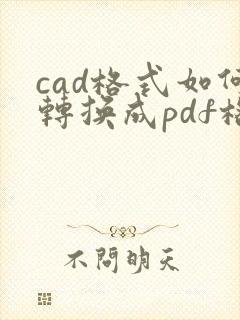 cad格式如何
轉換成pdf格
不問明天